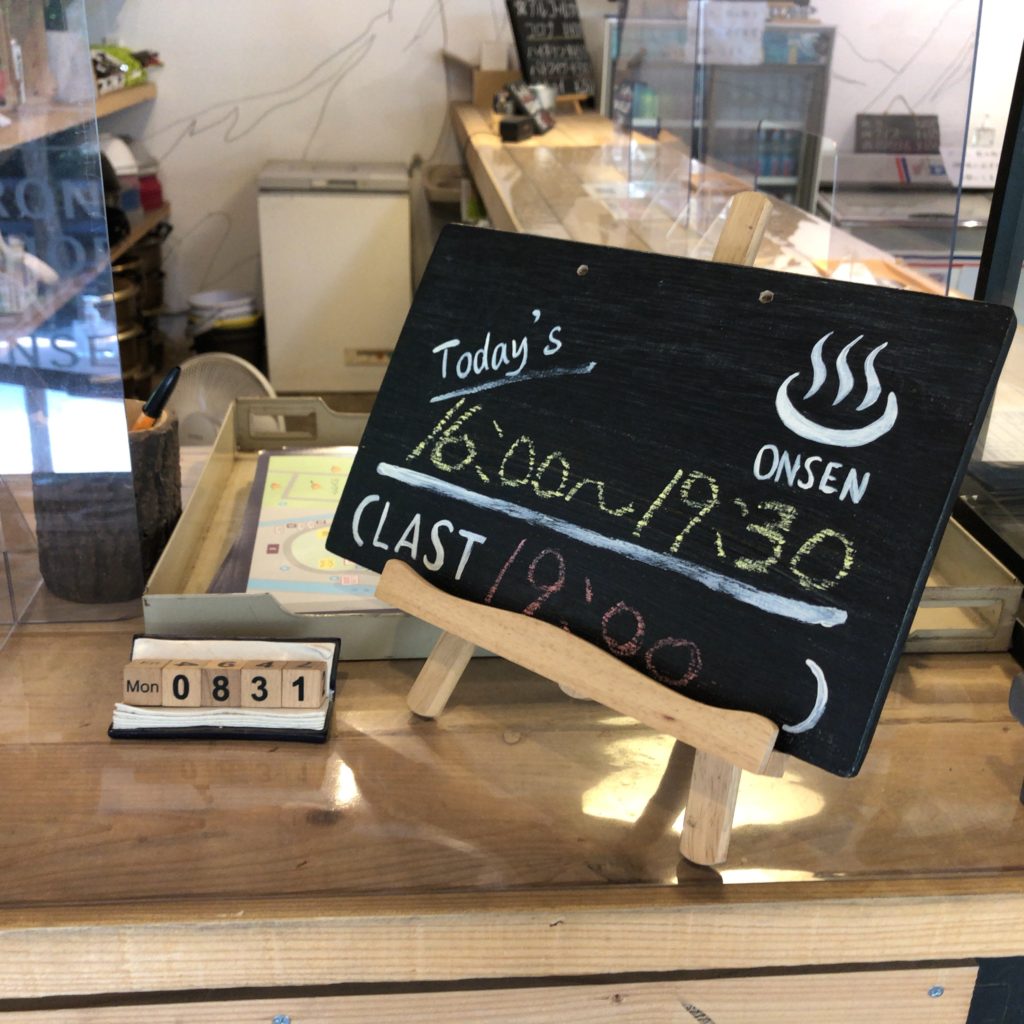 Today's
16:00~19:30
ONSEN
(LAST 19:00 )
Mon 0 8 3 1